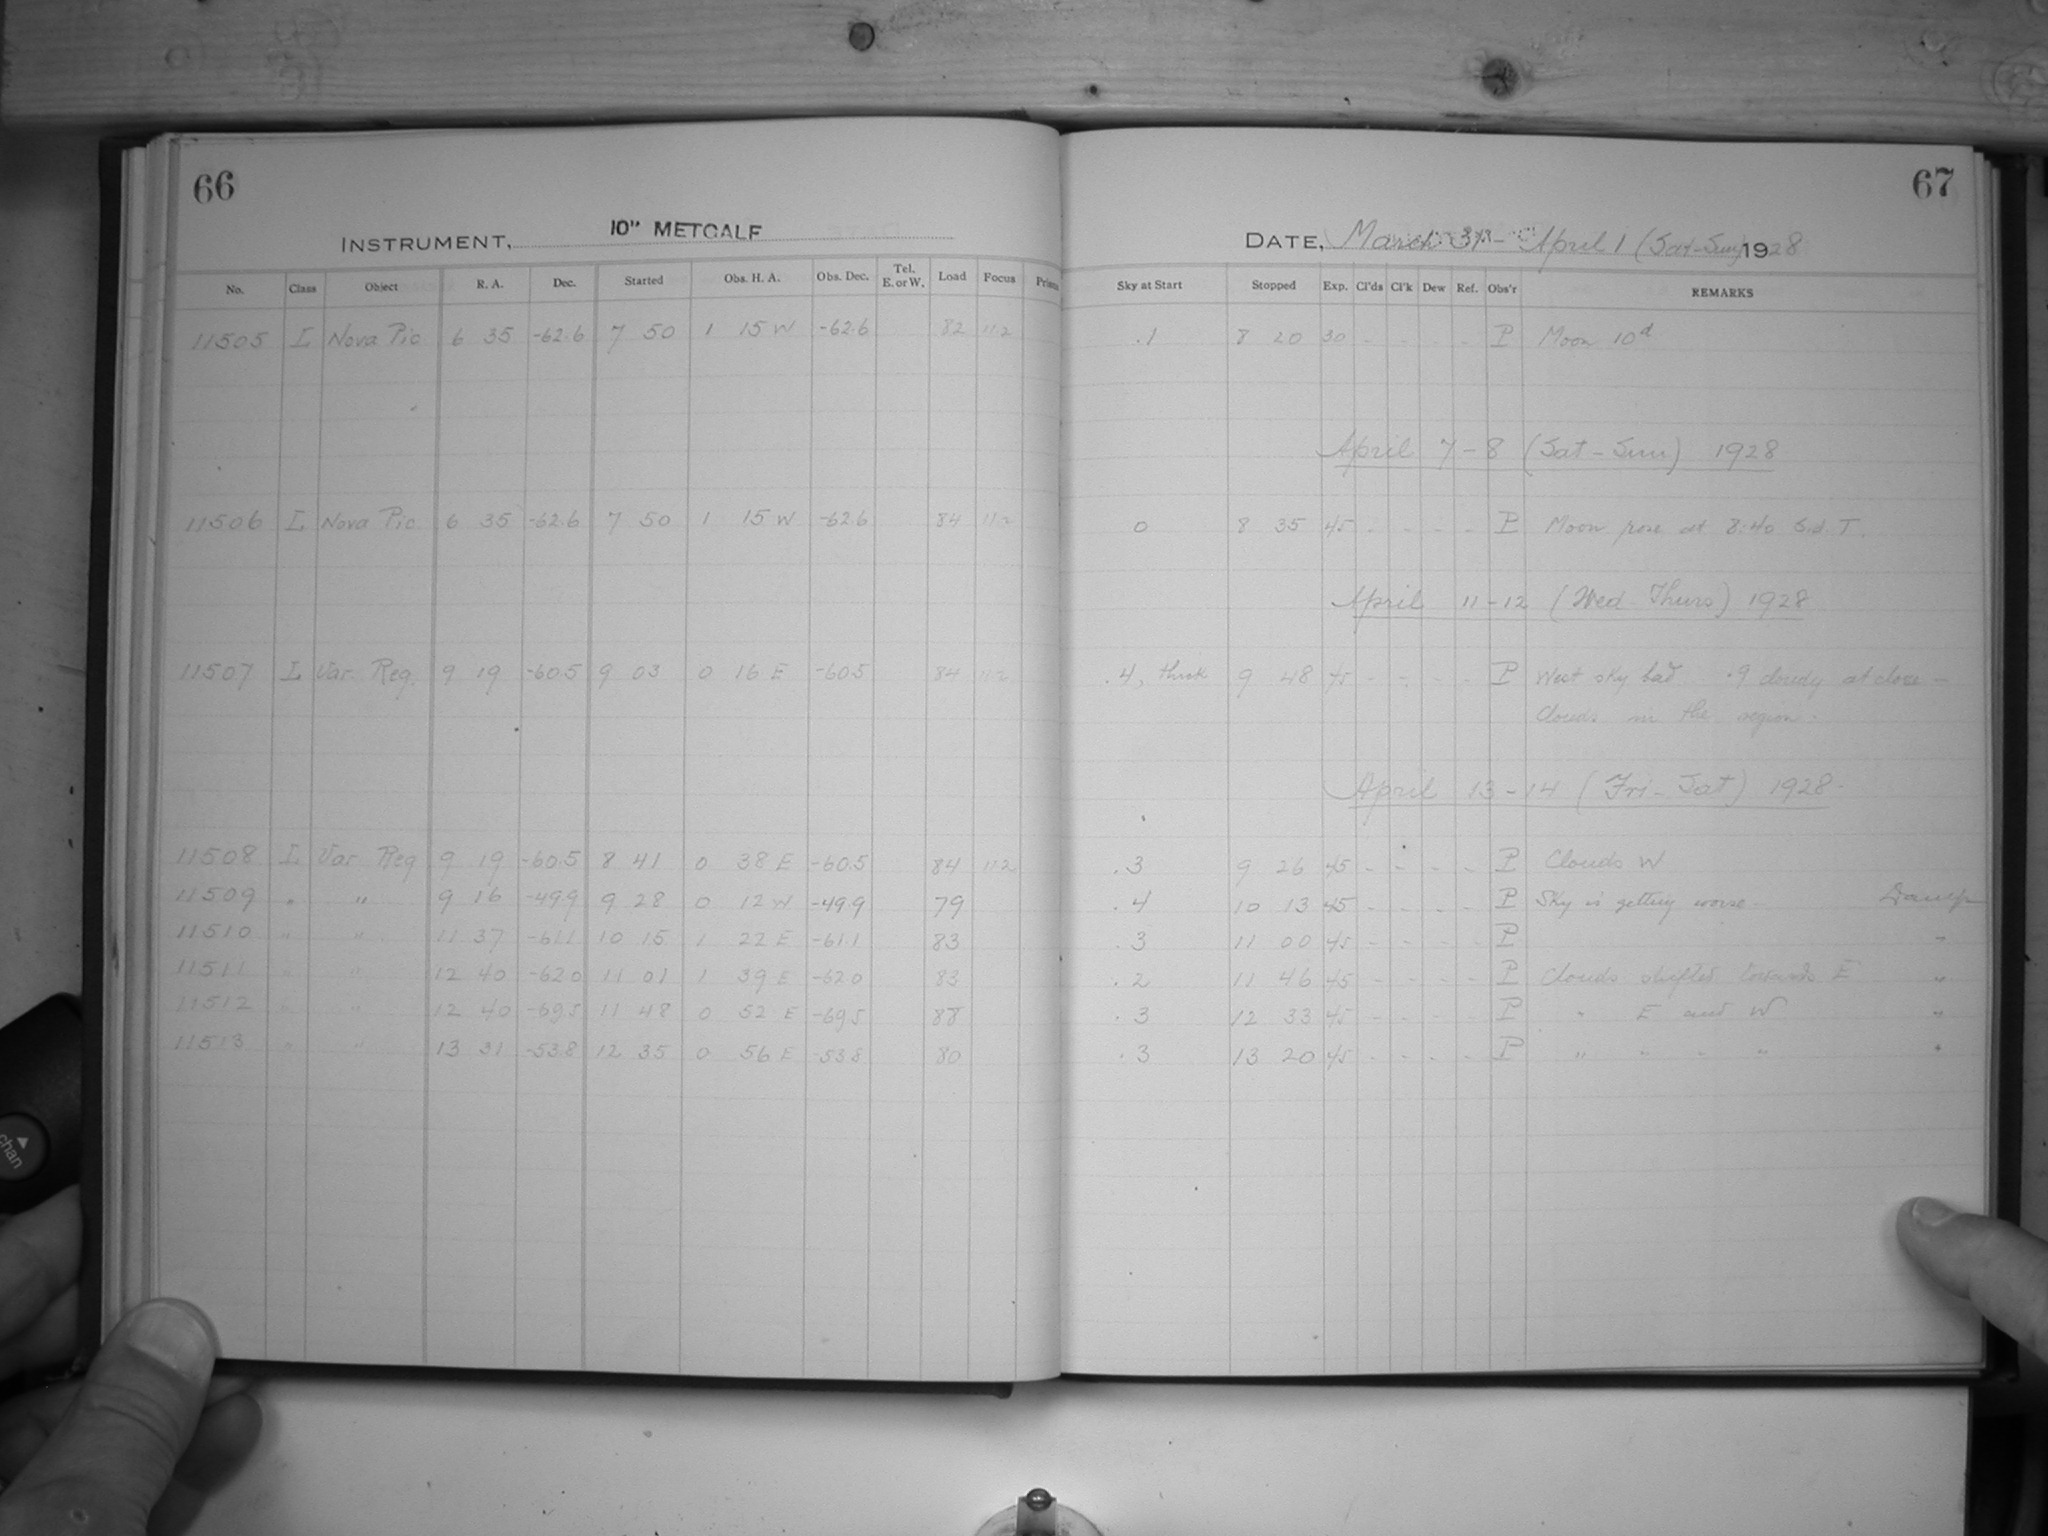 66
INSTRUMENT, 10" METCALF
No. Class Object R. A. Dec. Started Obs. H. A. Obs. Dec. Tel. E. or W. Load Focus Prism
11505 L Nova Pic 6 35 -62.6 7 50 1 15 W -62.6 82 11.2
11506 L Nova Pic 6 35 -62.6 7 50 1 15 W -62.6 84 11.2
11507 L Var. Reg. 9 19 -60.5 9 03 0 16 E -60.5 84 11.2
11508 L Var. Reg 9 19 -60.5 8 41 0 38 E -60.5 84 11.2
11509 " " 9 16 -49.9 9 28 0 12 W -49.9 79
11510 " " 11 37 -61.1 10 15 1 22 E -61.1 83
11511 " " 12 40 -62.0 11 01 1 39 E -62.0 83
11512 " " 12 40 -69.5 11 48 0 52 E -69.5 88
11513 " " 13 31 -53.8 12 35 0 56 E -53.8 80
67
DATE, March 31 - April 1 (Sat-Sun) 1928
Sky at Start Stopped Exp. Cl'ds Cl'k Dew Ref. Obs'r REMARKS
.1 8 20 30 - - - - P Moon 10d
April 7-8 (Sat-Sun) 1928
0 8 35 45 - - - - P Moon rose at 8:40 Sid. T.
April 11-12 (Wed Thurs) 1928
.4, thick 9 48 45 - - - - P West sky bad .9 cloudy at close -
Clouds in the region.
April 13-14 (Fri-Sat) 1928-
.3 9 26 45 - - - - P Clouds W
.4 10 13 45 - - - - P Sky is getting worse - Damp
.3 11 00 45 - - - - P "
.2 11 46 45 - - - - P Clouds shifted towards E "
.3 12 33 45 - - - - P " E and W "
.3 13 20 45 - - - - P " " " " "
chan